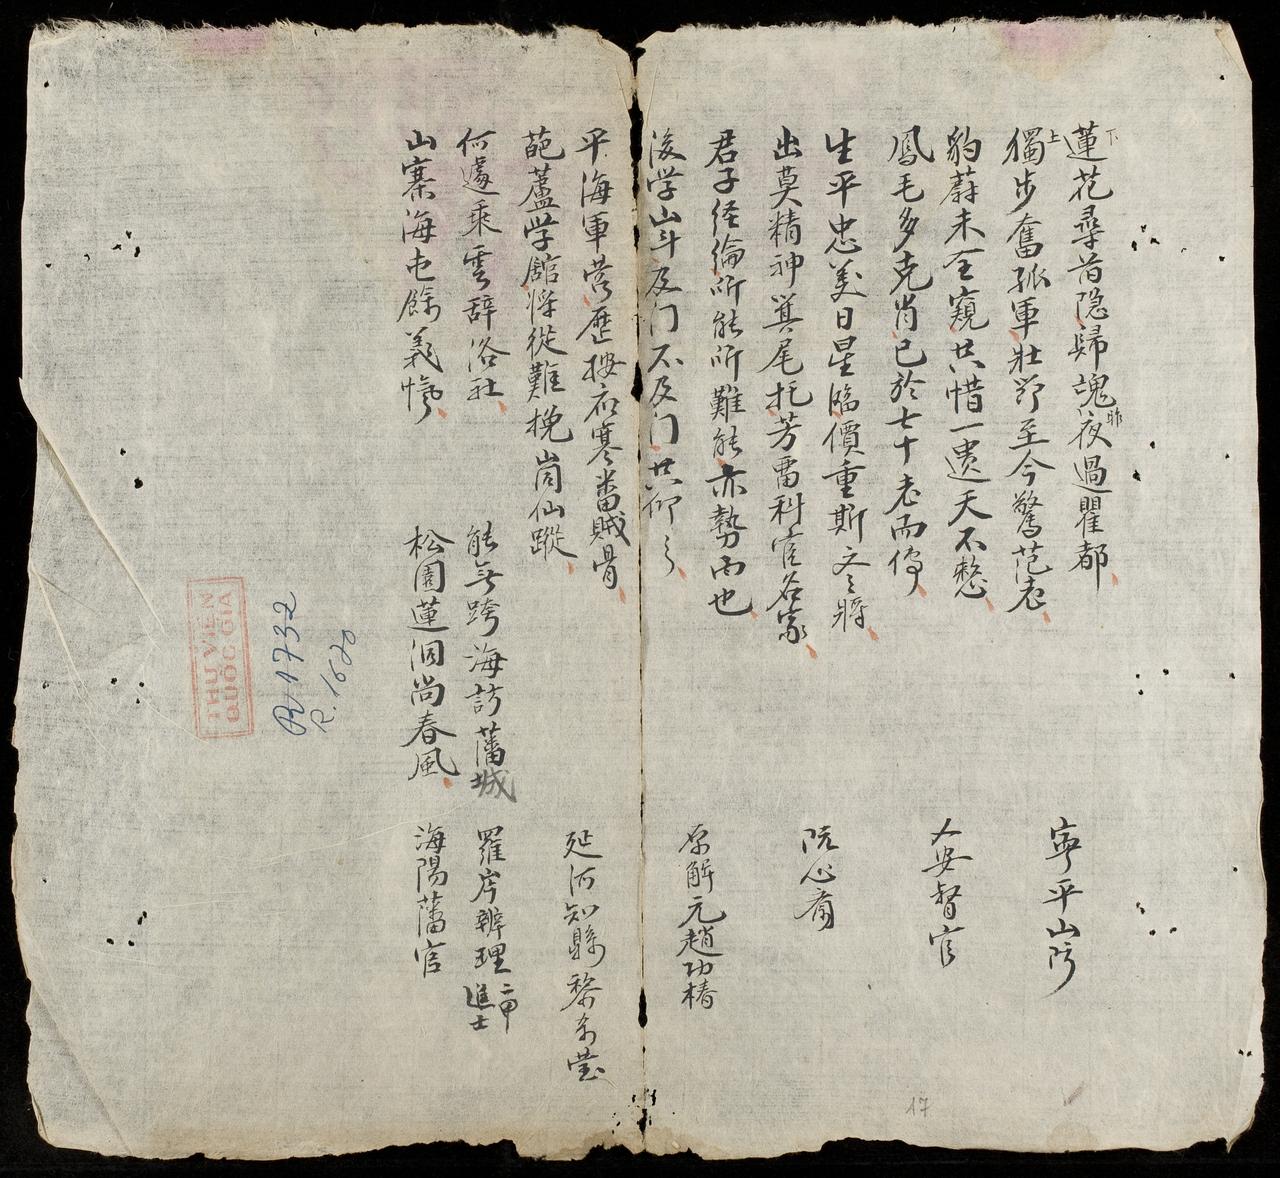 下
蓮花尋首隐歸魂昨夜過瞿都
上
獨步奮孤軍壯節至今驚范老
豹蔚未全窺共惜一遺天不憖
鳳毛多克肖已於七十老而傳
生平忠義日星臨價重斯文之將
出莫精神箕尾托芳畱科宦名家
君子経綸所能所難能亦勢而也
後学山斗及门不及门共仰之
平海軍营歴按右寒畨賊骨
葩蘆学館将從難挽崗仙蹤
何遽乘雲辞洛社 能無跨海訪藩城
山寨海屯餘義愾 松園蓮沼尚春風
寧平山防
乂安督官
阮心齋
原解元趙功椿
延河知縣黎
羅岸辦理二甲進士
海陽藩官
THƯ VIỆN
QUỐC GIA
R.1732
R.1620
17